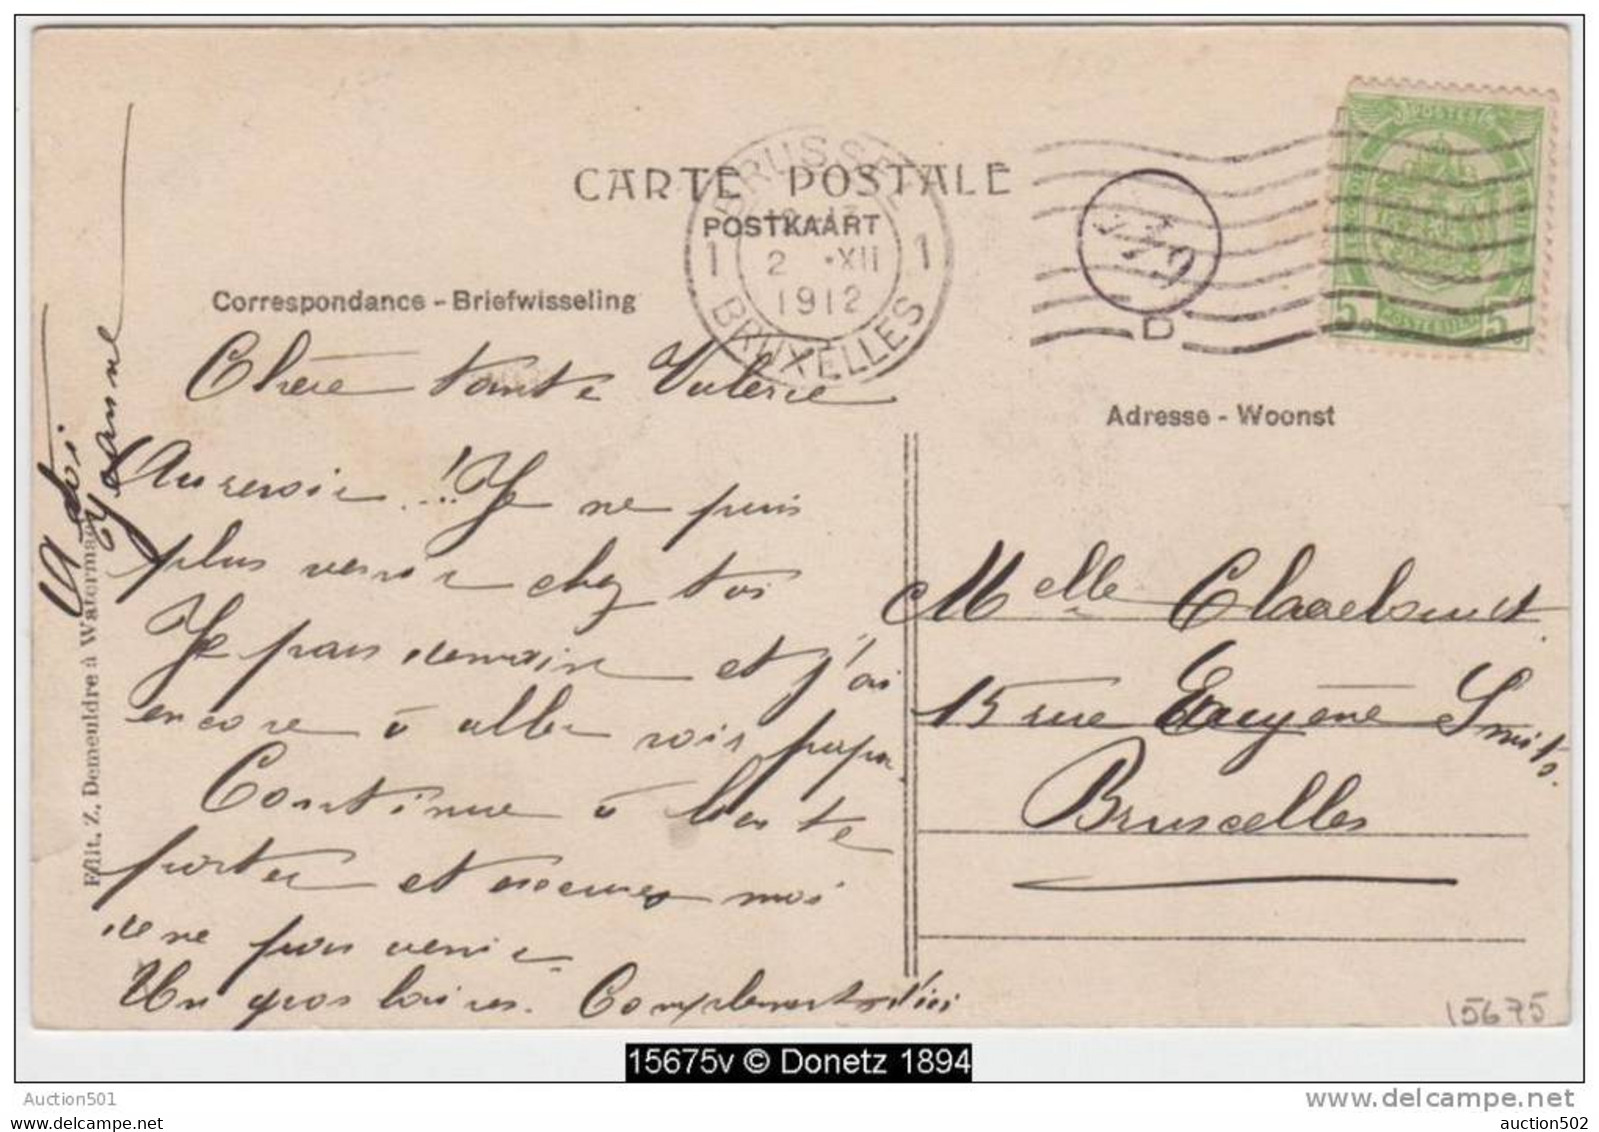 CARTE POSTALE
POSTKAART
BRUSSEL
1 2 XII 1
1912
BRUXELLES
D
POSTES
5 POSTERIJEN 5
Correspondance - Briefwisseling
Adresse - Woonst
Chère tante Valerie
Au revoir ..!! Je ne puis
plus venir chez toi
Je pars demain et j'ai
encore à aller voir papa.
Continue à bien te
porter et excuses moi
de ne pas venir.
Un gros baiser. Compliments d'ici
A toi
Yvanne
Melle
15 rue Eugène Smits.
Bruxelles
Edit. Z. Demeuldre à Watermael
15675
15675v © Donetz 1894
Auction501
www.delcampe.net
auction502